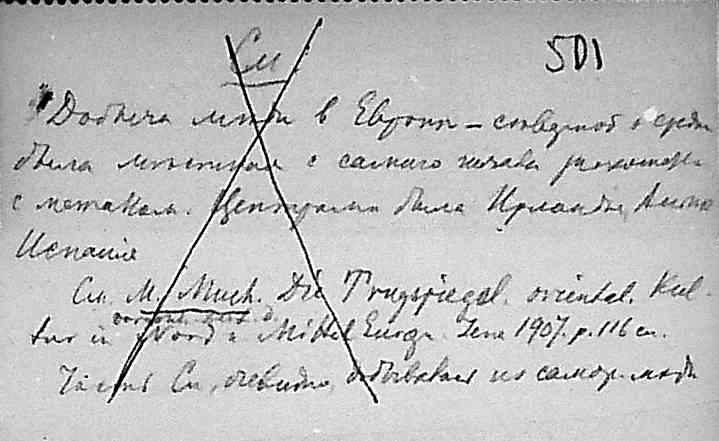 Cu. 501
Добыча меди в Европе – северной и средн
была местная с самого начала
с металлом. Центрами была Ирландия, Англия
Испания
См. M. Much. Die Trugspiegel. oriental. Kul-
tur in Nord u. MittelEurop. Jena 1907. p. 116 сл.
Часть Cu, очевидно, добывалась из самор. меди